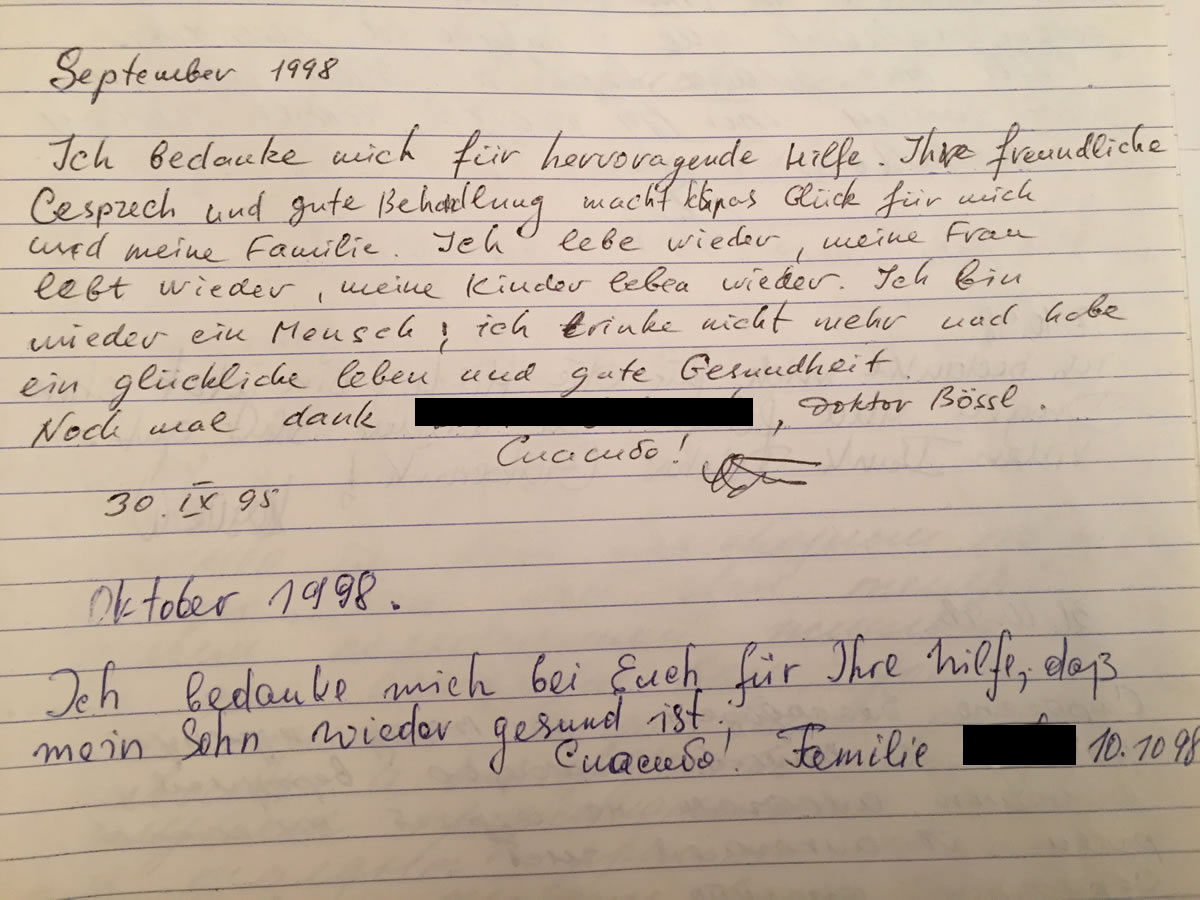 September 1998
Ich bedanke mich für hervoragende Hilfe. Ihre freundliche
Gesprech und gute Behandlung macht Glück für mich
und meine Familie. Ich lebe wieder, meine Frau
lebt wieder, meine Kinder leben wieder. Ich bin
wieder ein Mensch; ich trinke nicht mehr und habe
ein glückliche leben und gute Gesundheit.
Noch mal dank , Doktor Bössl.
Спасибо!
30. IX 95
Oktober 1998.
Ich bedanke mich bei Euch für Ihre hilfe, daß
mein Sohn wieder gesund ist.
Спасибо! Familie 10.10 98